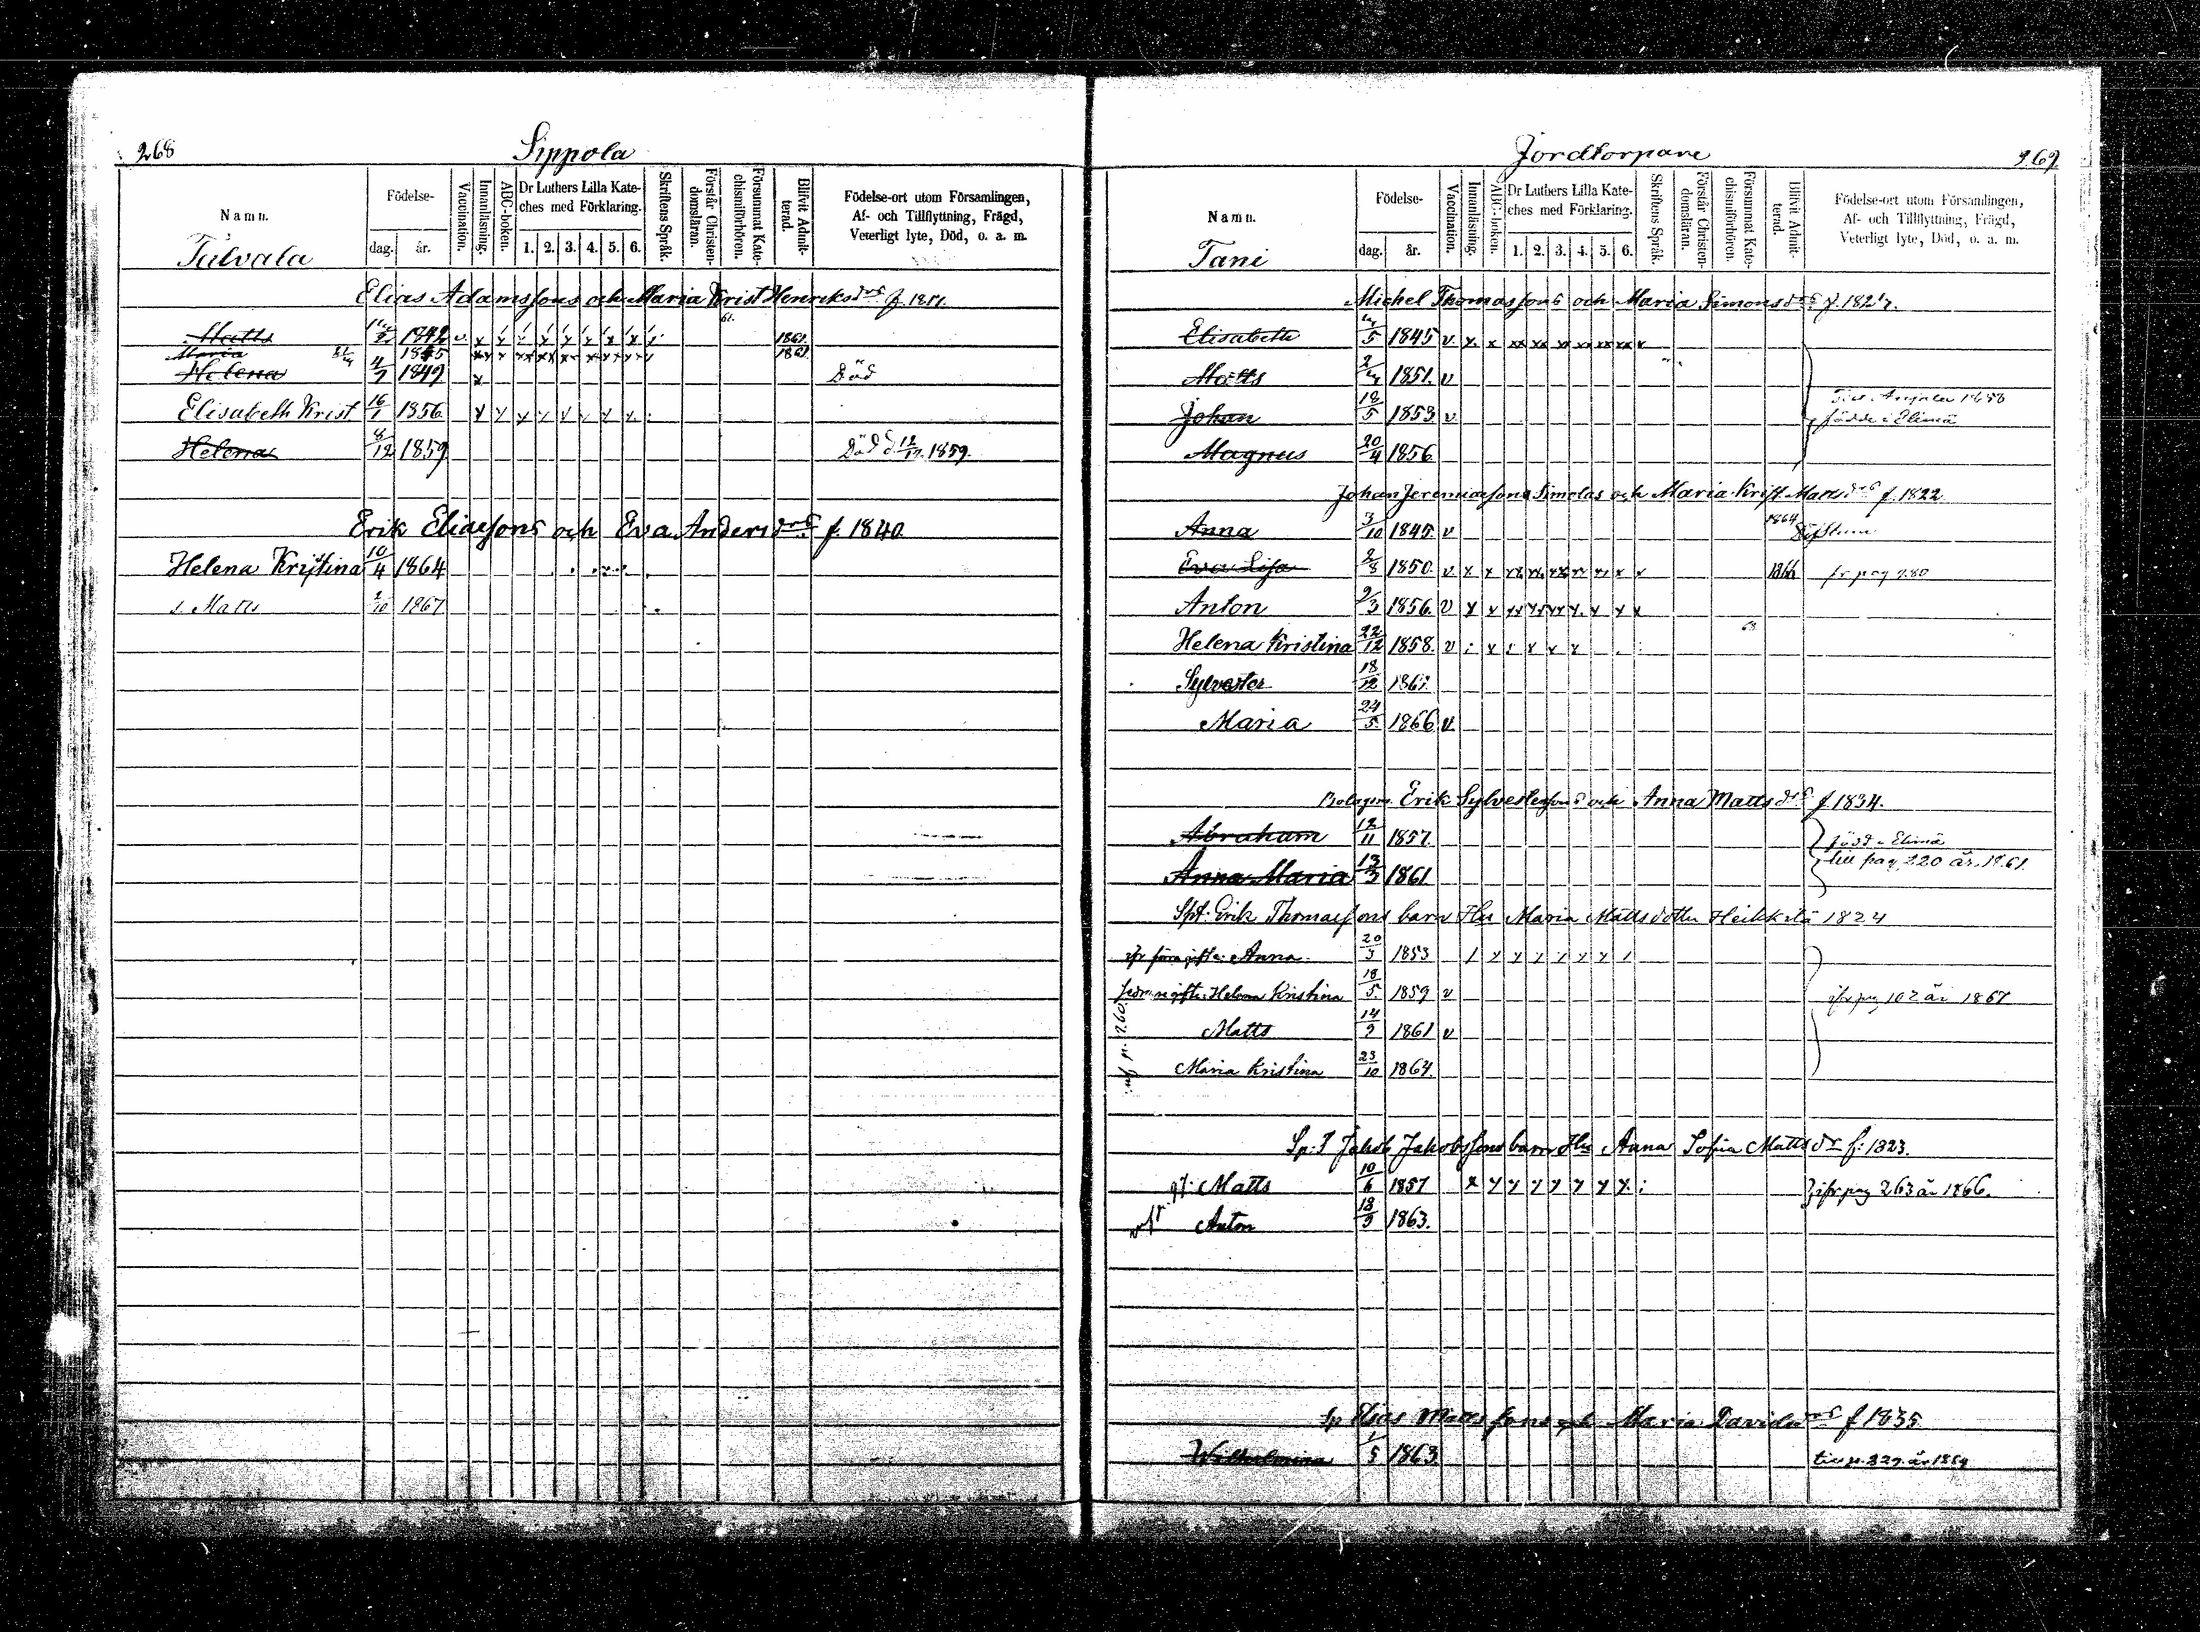 268
Sippola
Namn.
Födelse-
dag.
år.
Vaccination.
Innanläsning.
ABC-boken.
Dr Luthers Lilla Kate-
ches med Förklaring.
1. 2. 3. 4. 5. 6.
Skriftens Språk.
Förstår Christen-
domsläran.
Försummat Kate-
chismiförhören.
Blifvit Admit-
terad.
Födelse-ort utom Församlingen,
Af- och Tillflyttning, Frägd,
Veterligt lyte, Död, o. a. m.
Elias Adamssons och Maria Krist Henriksdrs f. 1811.
Matts 1842 v 1861.
Maria 1845 1861
Helena 1849 Död
Elisabeth Krist. 16/1 1856
Helena 8/12 1859 Död d. 12/12 1859.
Erik Eliassons och Eva Andersdrs f. 1840.
Helena Kristina 10/4 1864
s. Matts 1867
Jordtorpare
269
Namn.
Tani
Födelse-
dag.
år.
Vaccination.
Innanläsning.
ABC-boken.
Dr Luthers Lilla Kate-
ches med Förklaring.
1. 2. 3. 4. 5. 6.
Skriftens Språk.
Förstår Christen-
domsläran.
Försummat Kate-
chismiförhören.
Blifvit Admit-
terad.
Födelse-ort utom Församlingen,
Af- och Tillflyttning, Frägd,
Veterligt lyte, Död, o. a. m.
Michel Thomassons och Maria Simonsdrs f.
Elisabeth 1845 v
Matts 1851. v
Johan 18/5 1853 v födde i Elimä
Magnus 20/4 1856
Johan Jeremiassons Simolas och Maria Krist. Mattsdrs f. 1822
Anna 3/10 1845 v 1864
Eva Lisa 2/8 1850 v 1866
Anton 9/3 1856. v
Helena Kristina 22/12 1858. v
Sylvester 18/12
Maria 24/5 1866 v
Bolagsm. Erik Sylvestersons och Anna Mattsdrs f. 1834.
Abraham 12/11 1857. född i Elimä
till pag 220 år 1861.
Anna Maria 13/3 1861
Spt: Erik Thomassons barn Hu Maria Mattsdotter Heikkilä 1824
Anna 20/3 1853
Helena Kristina 18/5 1859 v ifr pag 102 år 1867
Matts 14/9 1861 v
Maria Kristina 23/10 1864.
Sp: T Jakob Jakobssons barn Hu Anna Sofia Mattsdr f: 1823.
Matts 10/6 1857 ifr pag 263 år 1866.
Anton 18/9 1863.
Sp Elias Mattssons och Maria Davidsdrs f 1835
Wilhelmina 1/5 1863